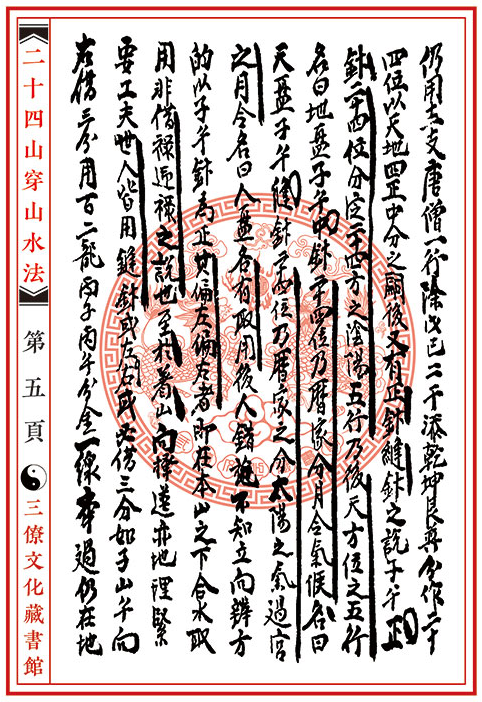 仍用十二支唐僧一行除戊己二干添乾坤艮巽分作二十
四位以天地四正中分之嗣後又有正針縫針之說子午正
針二十四位分定二十四方之陰陽五行乃後天方位之五行
名曰地盤子午中針二十四位乃曆家分月令氣候名曰
天盤子午縫針二十四位乃曆家之分太陽之氣過宫
之月令名曰人盤各有取用後人錯說不知立向辨方
的以子午針為正其偏左偏右者即在本山之下合水取
用非借祿過祿之說也至於着山向擇遠亦地理緊
要工夫世人皆用縫針或左右或必借三分如子山午向
右借三分用百二龍丙子丙午分金一線奔過仍在地
二十四山穿山水法
第五頁
三僚文化藏書館